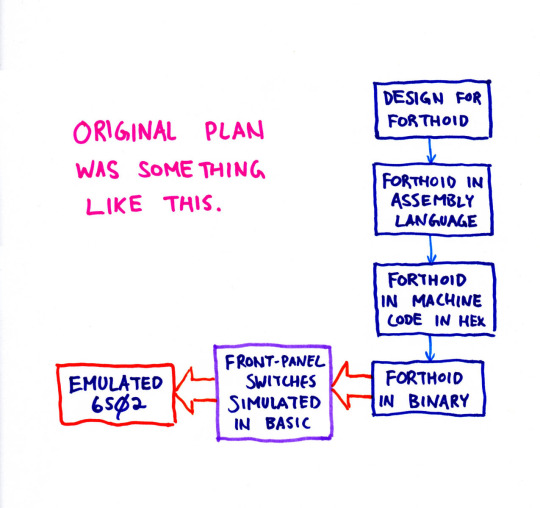 ORIGINAL PLAN
WAS SOMETHING
LIKE THIS.
DESIGN FOR
FORTHOID
FORTHOID IN
ASSEMBLY
LANGUAGE
FORTHOID
IN MACHINE
CODE IN HEX
FORTHOID
IN BINARY
FRONT-PANEL
SWITCHES
SIMULATED
IN BASIC
EMULATED
65∅2